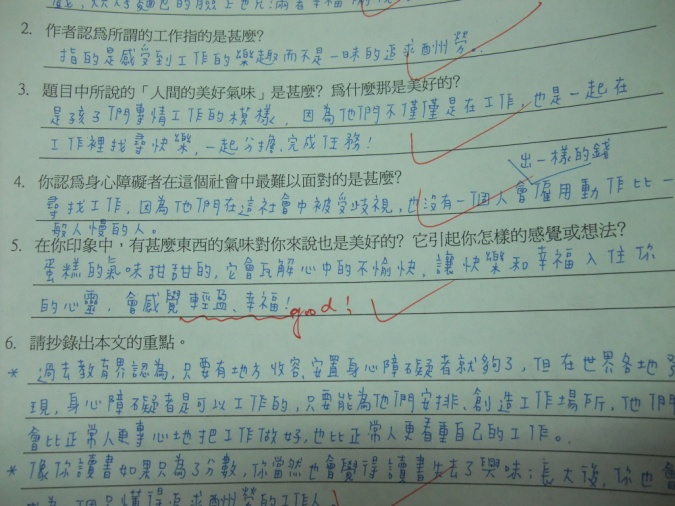 2. 作者認為所謂的工作指的是甚麼?
指的是感受到工作的樂趣而不是一味的追求酬勞。
3. 題目中所說的「人間的美好氣味」是甚麼?為什麼那是美好的?
是孩子們專情工作的模樣,因為他們不僅僅是在工作,也是一起在
工作裡找尋快樂,一起分擔、完成任務!
出一樣的錢
4. 你認為身心障礙者在這個社會中最難以面對的是甚麼?
尋找工作,因為他們在這社會中被受歧視,也沒有一個人會僱用動作比一
般人慢的人。
5. 在你印象中,有甚麼東西的氣味對你來說也是美好的?它引起你怎樣的感覺或想法?
蛋糕的氣味甜甜的,它會瓦解心中的不愉快,讓快樂和幸福入住你
的心靈,會感覺輕盈、幸福!
good!
6. 請抄錄出本文的重點。
* 過去教育界認為,只要有地方收容、安置身心障礙者就夠了,但在世界各地發
現,身心障礙者是可以工作的,只要能為他們安排、創造工作場所,他們
會比正常人更專心地把工作做好,也比正常人更看重自己的工作。
* 像你讀書如果只為了分數,你當然也會覺得讀書失去了興味;長大後,你也會
個只懂得追求酬勞的工作人